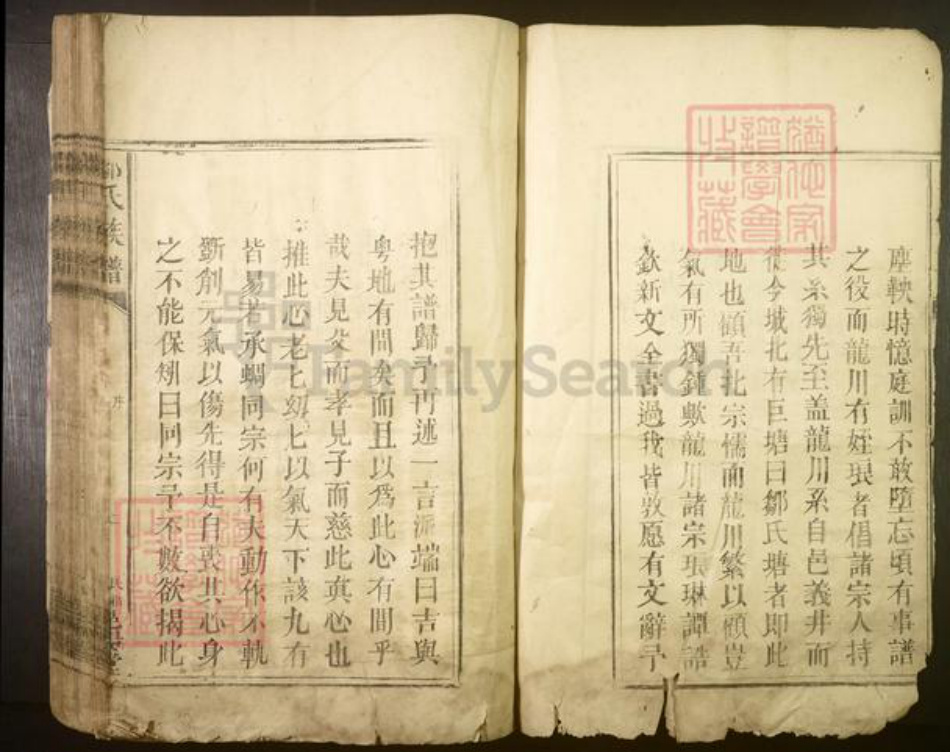 塵鞅時憶庭訓不敢墮忘頃有事譜
之役而龍川有姪琅者倡諸宗人持
其系獨先至盖龍川系自邑義井而
徙今城北有巨塘曰鄒氏塘者即此
地也顧吾北宗懦而龍川繁以顧豈
氣有所獨鍾歟龍川諸宗琅琳譚誥
欽新文全書過我皆敦愿有文辭予
抱其譜歸予再述一言派端曰吉與
粵地有間矣而且以爲此心有間乎
哉夫見父而孝見子而慈此真心也
推此心老七幼七以氣天下該九有
皆易若承蜩同宗何有夫動作不軌
斵削元氣以傷先得是自喪其心身
之不能保矧曰同宗予不數欲揭此
氏族譜
FamilySearch